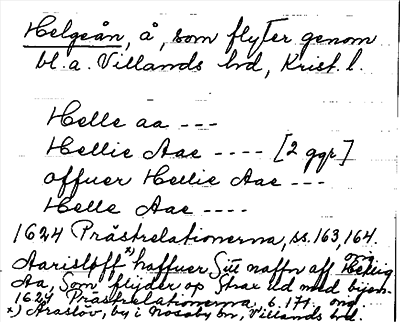 Helgeån, å, som flyter genom
bl.a. Villands hd, Krist. l.
Helle aa ---
Hellie Aae ---- [2 ggr.]
offuer Hellie Aae ---
Helle Aae ----
1624 Prästrelationerna, ss. 163, 164.
Aarisløff x) haffuer Sitt naffn aff Hellig
Aa, Som flijder op Strax ud med byen.
1624 Prästrelationerna, s. 171.
x) Araslöv, by i Nosaby sn, Villands hd.